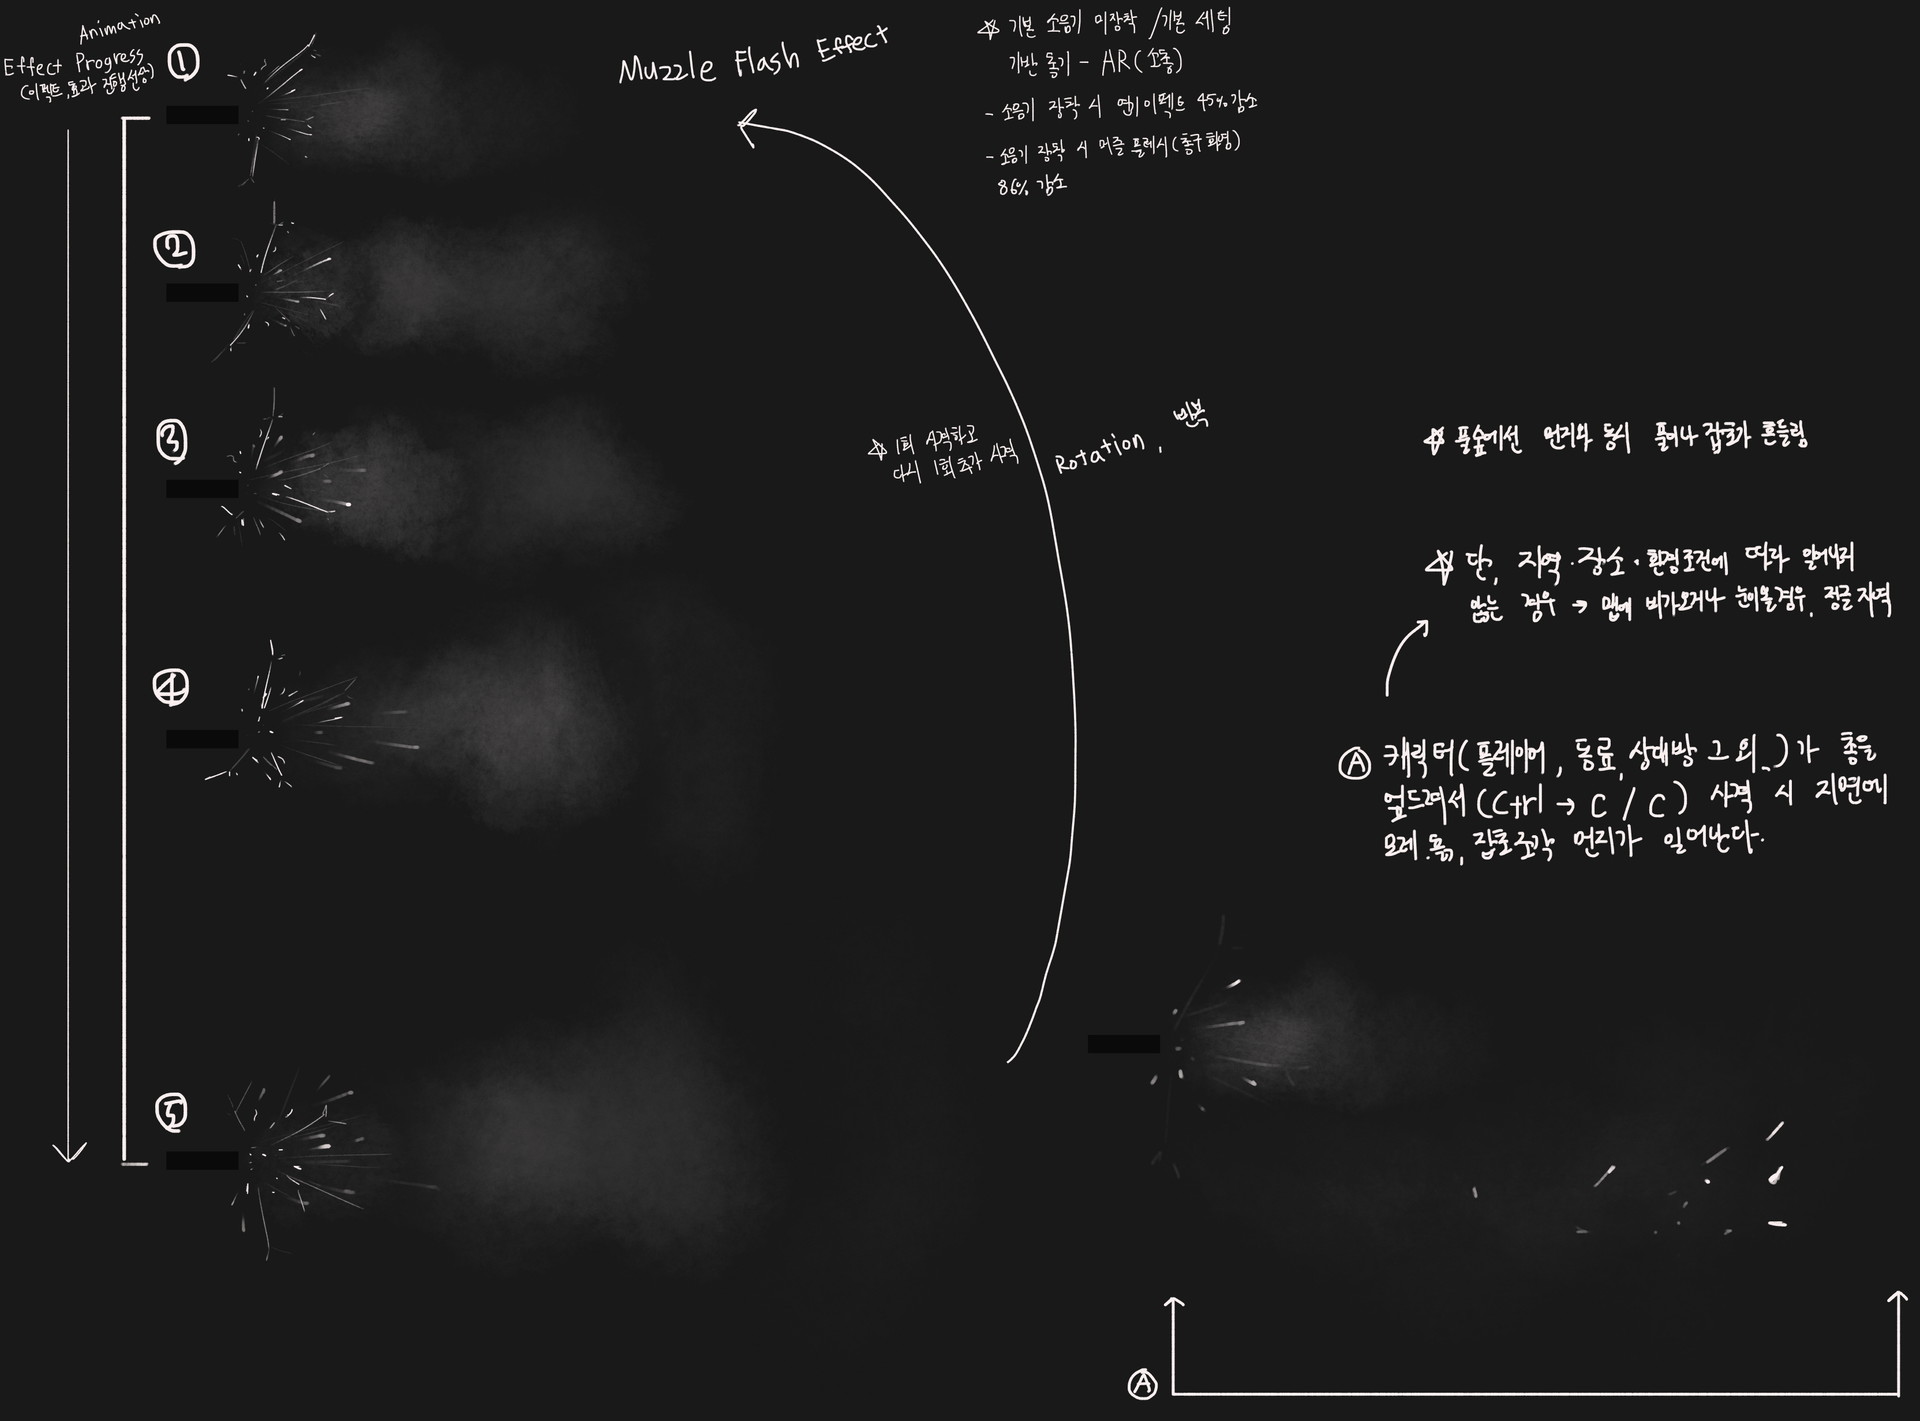 Animation
Effect Progress
(이펙트, 효과 진행선송)
①
②
③
④
⑤
Muzzle Flash Effect
☆ 기본 소음기 미장착 / 기본 세팅
기반 통기 - AR (소총)
- 소음기 장착 시 연기 이펙트 45% 감소
- 소음기 장착 시 머즐 플레시 (총구 화염)
86% 감소
☆ 1회 사격하고
다시 1회 추가 사격
Rotation, 반복
☆ 풀숲에선 먼지와 동시 풀이나 잡초가 흔들림
☆ 단, 지역·장소·환경조건에 따라 일어나지
않는 경우 → 맵에 비가오거나 눈이올경우, 정글 지역
Ⓐ 캐릭터(플레이어, 동료, 상대방 그 외..)가 총을
엎드려서 (Ctrl → C / C) 사격 시 지면에
모레, 흙, 잡초조각 먼지가 일어난다.
Ⓐ